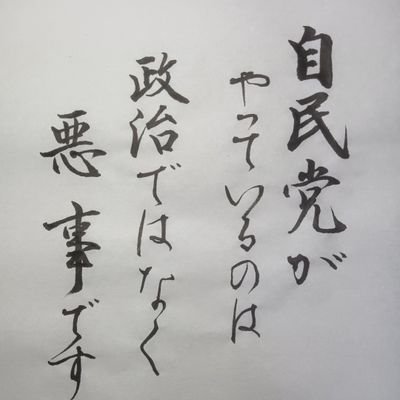 自民党が
やっているのは
政治ではなく
悪事です